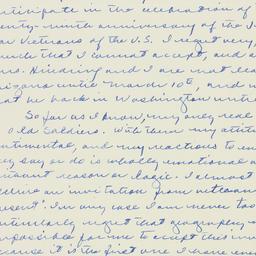 nticipate in the celebration of
enty-ninth anniversary of the
an Veterans of the U.S. I regret very,
uch that I cannot accept, and a
rs. Hindring and I are not lea
izona until March 10th, and w
ot be back in Washington unti
So far as I know, my only real
Old Soldiers. With them my attitu
ntimental, and my reactions to
ey say or do is wholly emotional
ithout reason or logic. I almost
believe an invitation from veterans
esent". In any case I am never too
nticularly regret that geography
mpossible for me to accept this in
cause it is the first one I have